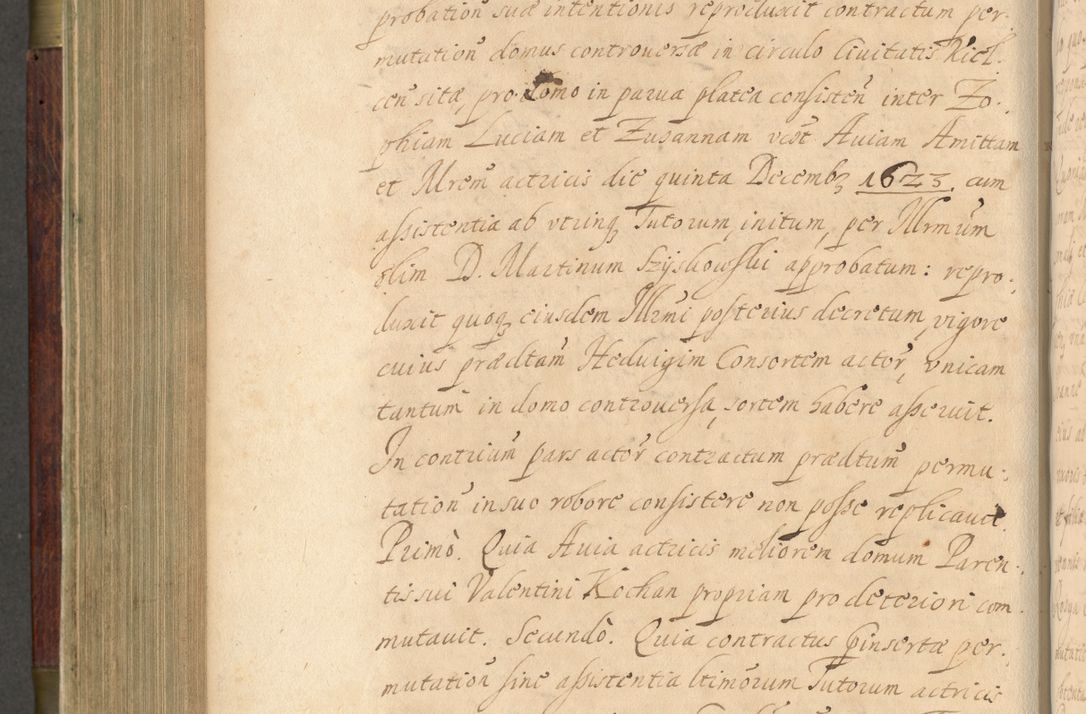 probationẽ suæ intentionis reproduxit contractum per-
mutationẽ domus controuersæ in circulo Ciuitatis Kiel-
ceñ sitæ, pro domo in parua platea consisteñ inter Zo-
phiam Luciam et Zusannam vest Auiam Amittam
et Mrem̃ actricis die quinta Decembꝫ 1623. cum
assistentia ab vtrinqꝫ Tutorum initum, per Illrmũm
olim D. Martinum Szyskowski approbatum: repro-
duxit quoqꝫ eiusdem Illrmi posterius decretum, vigore
cuius prædtam̃ Heduigim Consortem actor̃, vnicam
tantum in domo controuersa, sortem habere asseruit.
In contrium̃ pars actor̃ contractum prædtum̃ permu-
tationẽ in suo robore consistere non posse replicauit.
Primò. Quia Auia actricis meliorem domum Paren-
tis sui Valentini Kochan propriam pro deteriori com
mutauit. Secundò. Quia contractus insertæ per-
mutationẽ sine assistentia ltimõrum Tutorum actricis